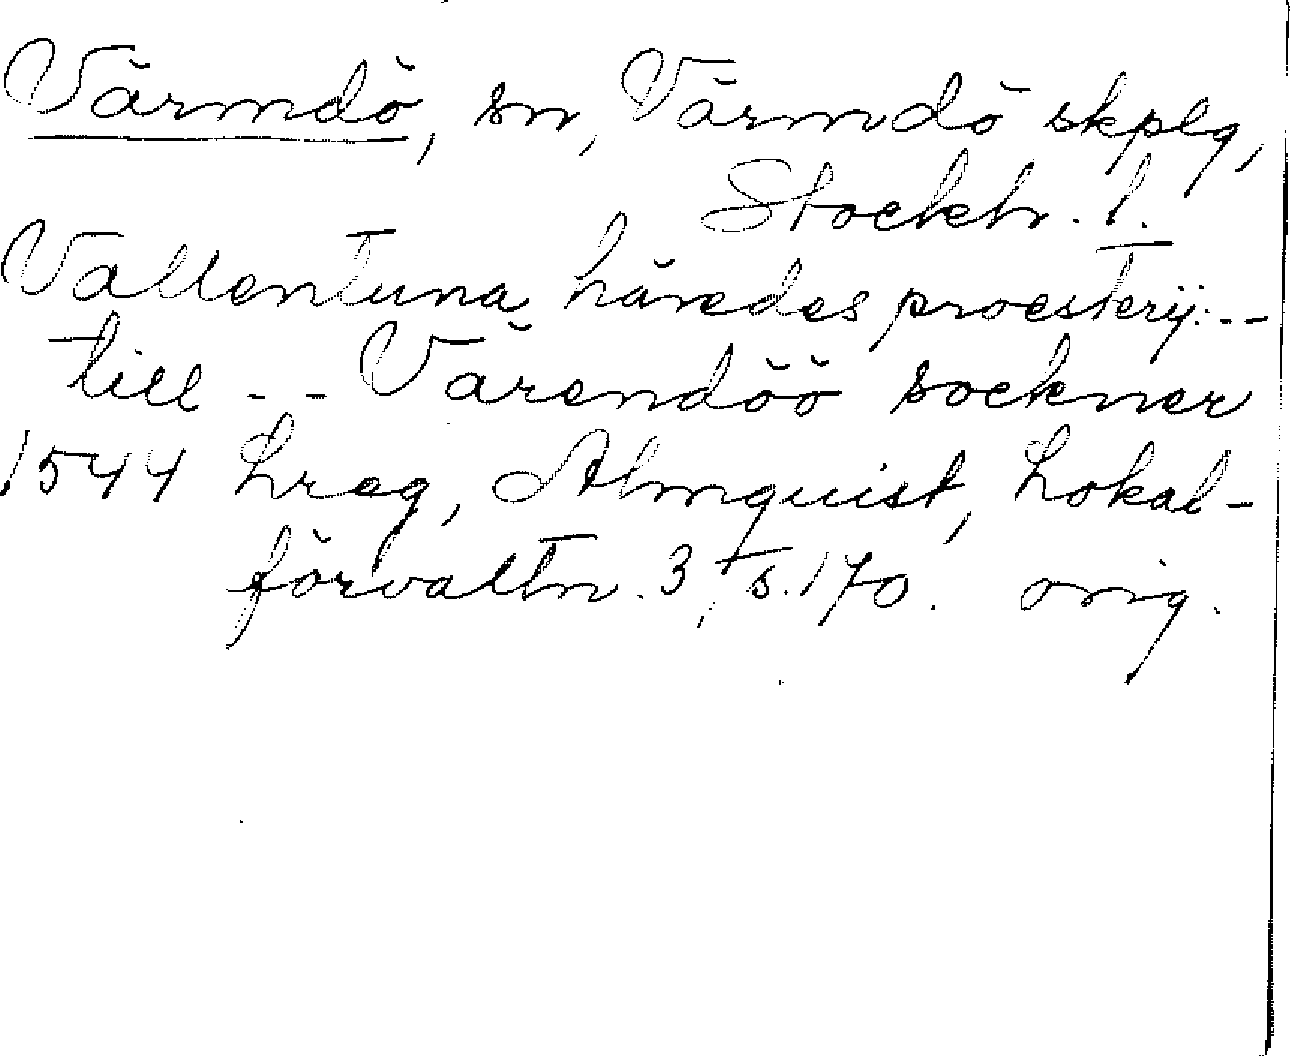 Värmdö, sn, Värmdö skplg,
Stockh. l.
Vallentuna häredes proesterij: --
till -- Värendöö sockner
1544 Lreg, Almquist, Lokal-
förvaltn. 3, s. 170. orig.